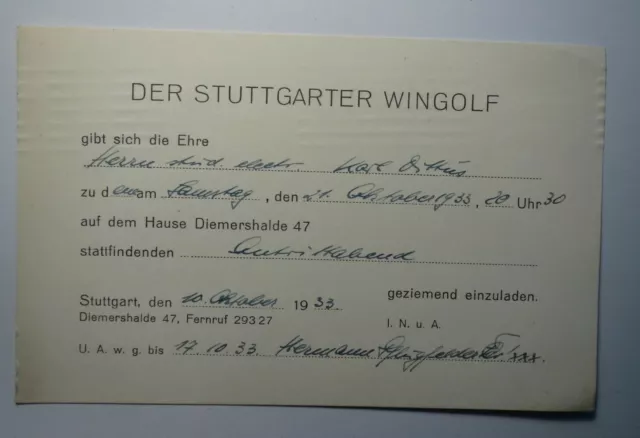 DER STUTTGARTER WINGOLF
gibt sich die Ehre
Herrn stud. electr. Karl Dittus
zu dem am Samstag, den 21. Oktober 1933, 20 Uhr 30
auf dem Hause Diemershalde 47
stattfindenden Antrittabend
geziemend einzuladen.
Stuttgart, den 10. Oktober 1933.
Diemershalde 47, Fernruf 29327
I. N. u. A.
U. A. w. g. bis 17.10.33. Hermann xxx.